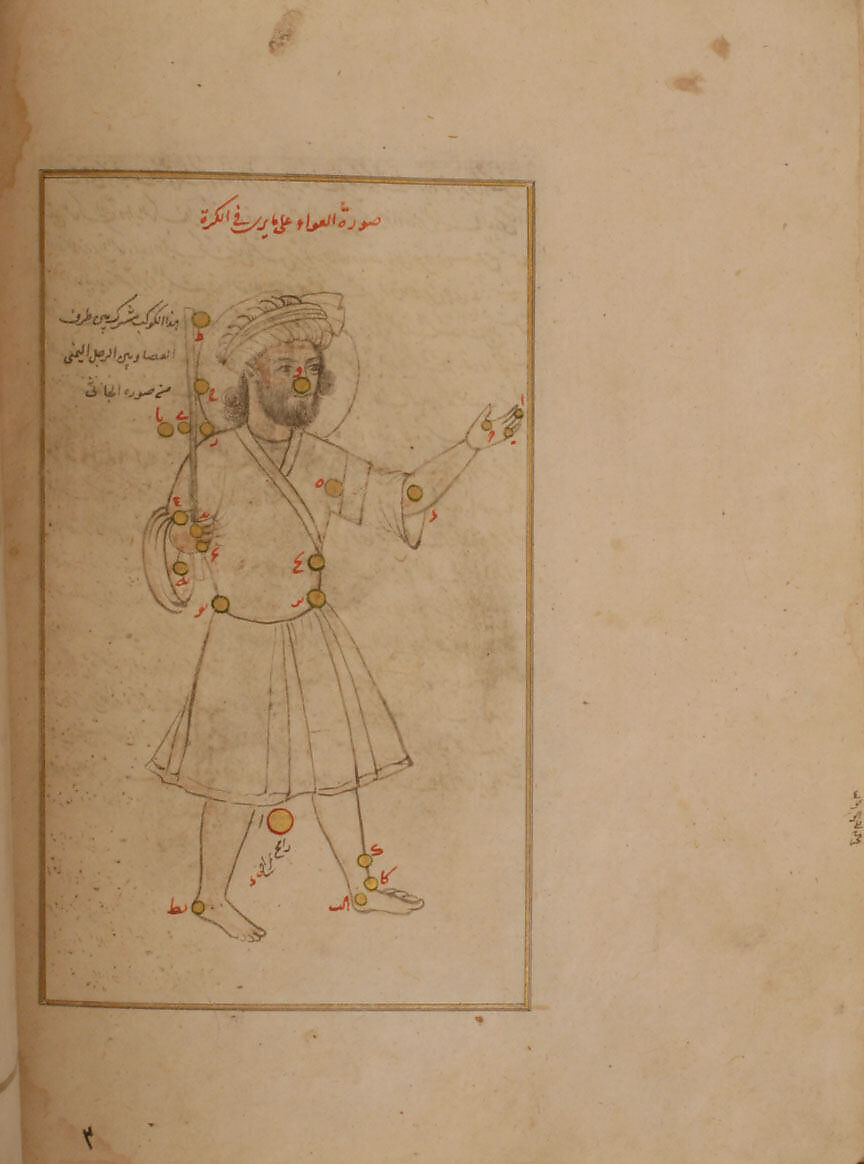 صورة العواء على ما يرى في الكرة
هذا الكوكب مشترك بين طرف
العصا وبين الرجل اليمنى
من صورة الجاثى
ط
و
ح
ا
يا
ى
ر
ه
د
يج
يد
يو
يح
ك
كا
كب
يط
ا
رامح
٣